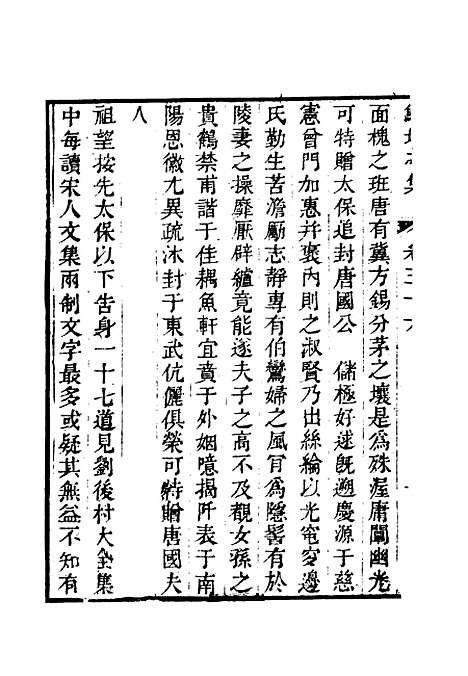 面槐之班唐有冀方錫分茅之壤是為殊渥庸闡幽光
可特贈太保追封唐國公　儲極好逑既遡慶源于慈
憲曾門加惠幷褒內則之淑賢乃出絲綸以光窀穸邊
氏勤生苦澹勵志靜專有伯鸞婦之風肎為隱髻有於
陵妻之操靡厭辟纑竟能遂夫子之高不及覩女孫之
貴鶴禁甫諧于佳耦魚軒宜賁于外姻噫揭阡表于南
陽恩徽尤異疏沐封于東武伉儷俱榮可特贈唐國夫
人
祖望按先太保以下告身一十七道見劉後村大全集
中每讀宋人文集兩制文字最多或疑其無益不知有